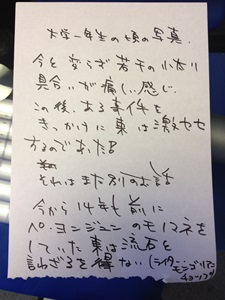 大学一年生の頃の写真.
今と変らず若干の小太り
具合いが痛しい感じ.
この後、ある事件を
きっかけに東は激ヤセ
するのであった
それはまた別のお話
今から14年も前に
ペ・ヨンジュンのモノマネを
していた東は流石と
言わざるを得ない(シイタ